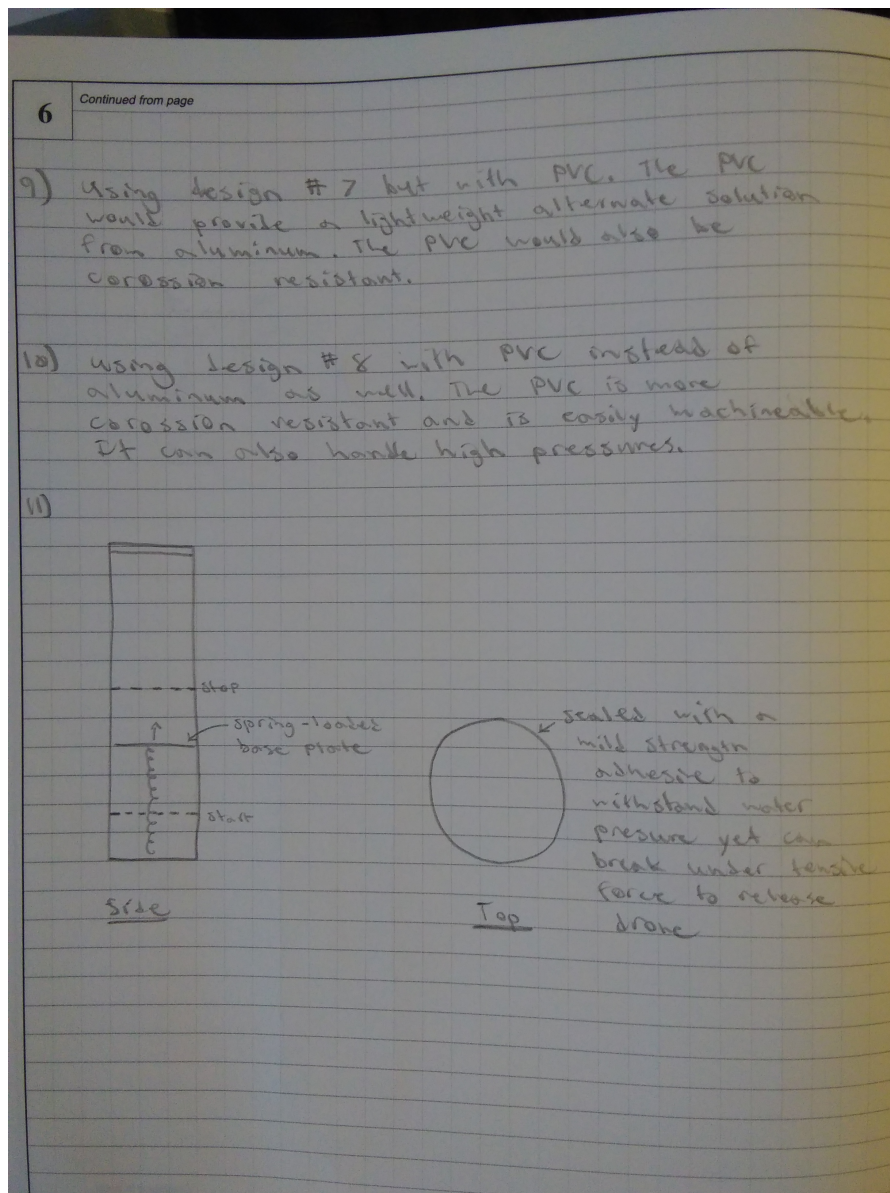 6
Continued from page
9) Using design # 7 but with PVC. The PVC
would provide a lightweight alternate solution
from aluminum. The PVC would also be
corossion resistant.
10) Using design # 8 with PVC instead of
aluminum as well. The PVC is more
corossion resistant and is easily machineable.
It can also handle high pressures.
11)
stop
spring-loaded
base plate
start
Side
sealed with a
mild strength
adhesive to
withstand water
presure yet can
break under tensile
force to release
drone
Top